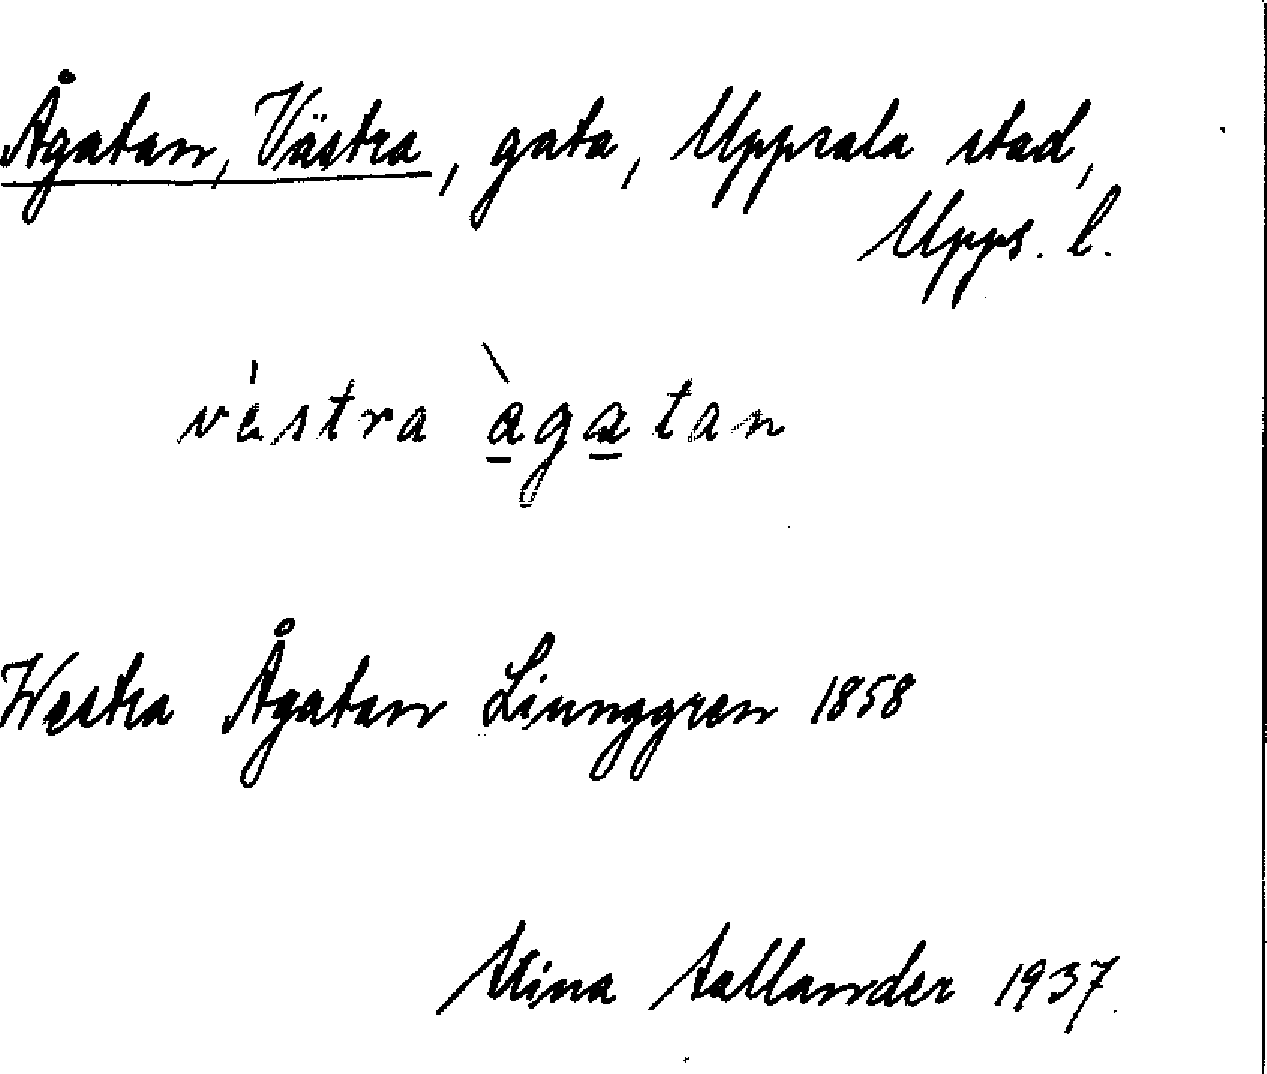 Ågatan, Västra, gata, Uppsala stad,
Upps. l.
västra àgatan
Westra Ågatan Ljunggren 1858
Stina 1937